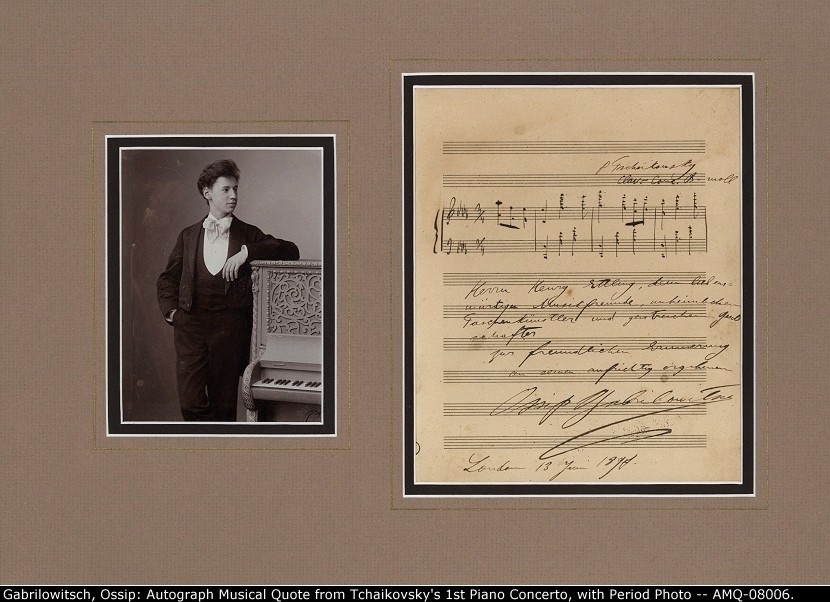 P Tschaikowsky
Clav. Conc. B-moll
Herrn Henry Ettling, dem liebens-
würdigen Musikfreunde, unheimlichen
Taschenkünstler und geistreichen
schafter
zur freundlichen Erinnerung
an seinen aufrichtig ergebenen
Ossip Gabrilowitsch
London 13 Juni 189
Gabrilowitsch, Ossip: Autograph Musical Quote from Tchaikovsky's 1st Piano Concerto, with Period Photo -- AMQ-08006.